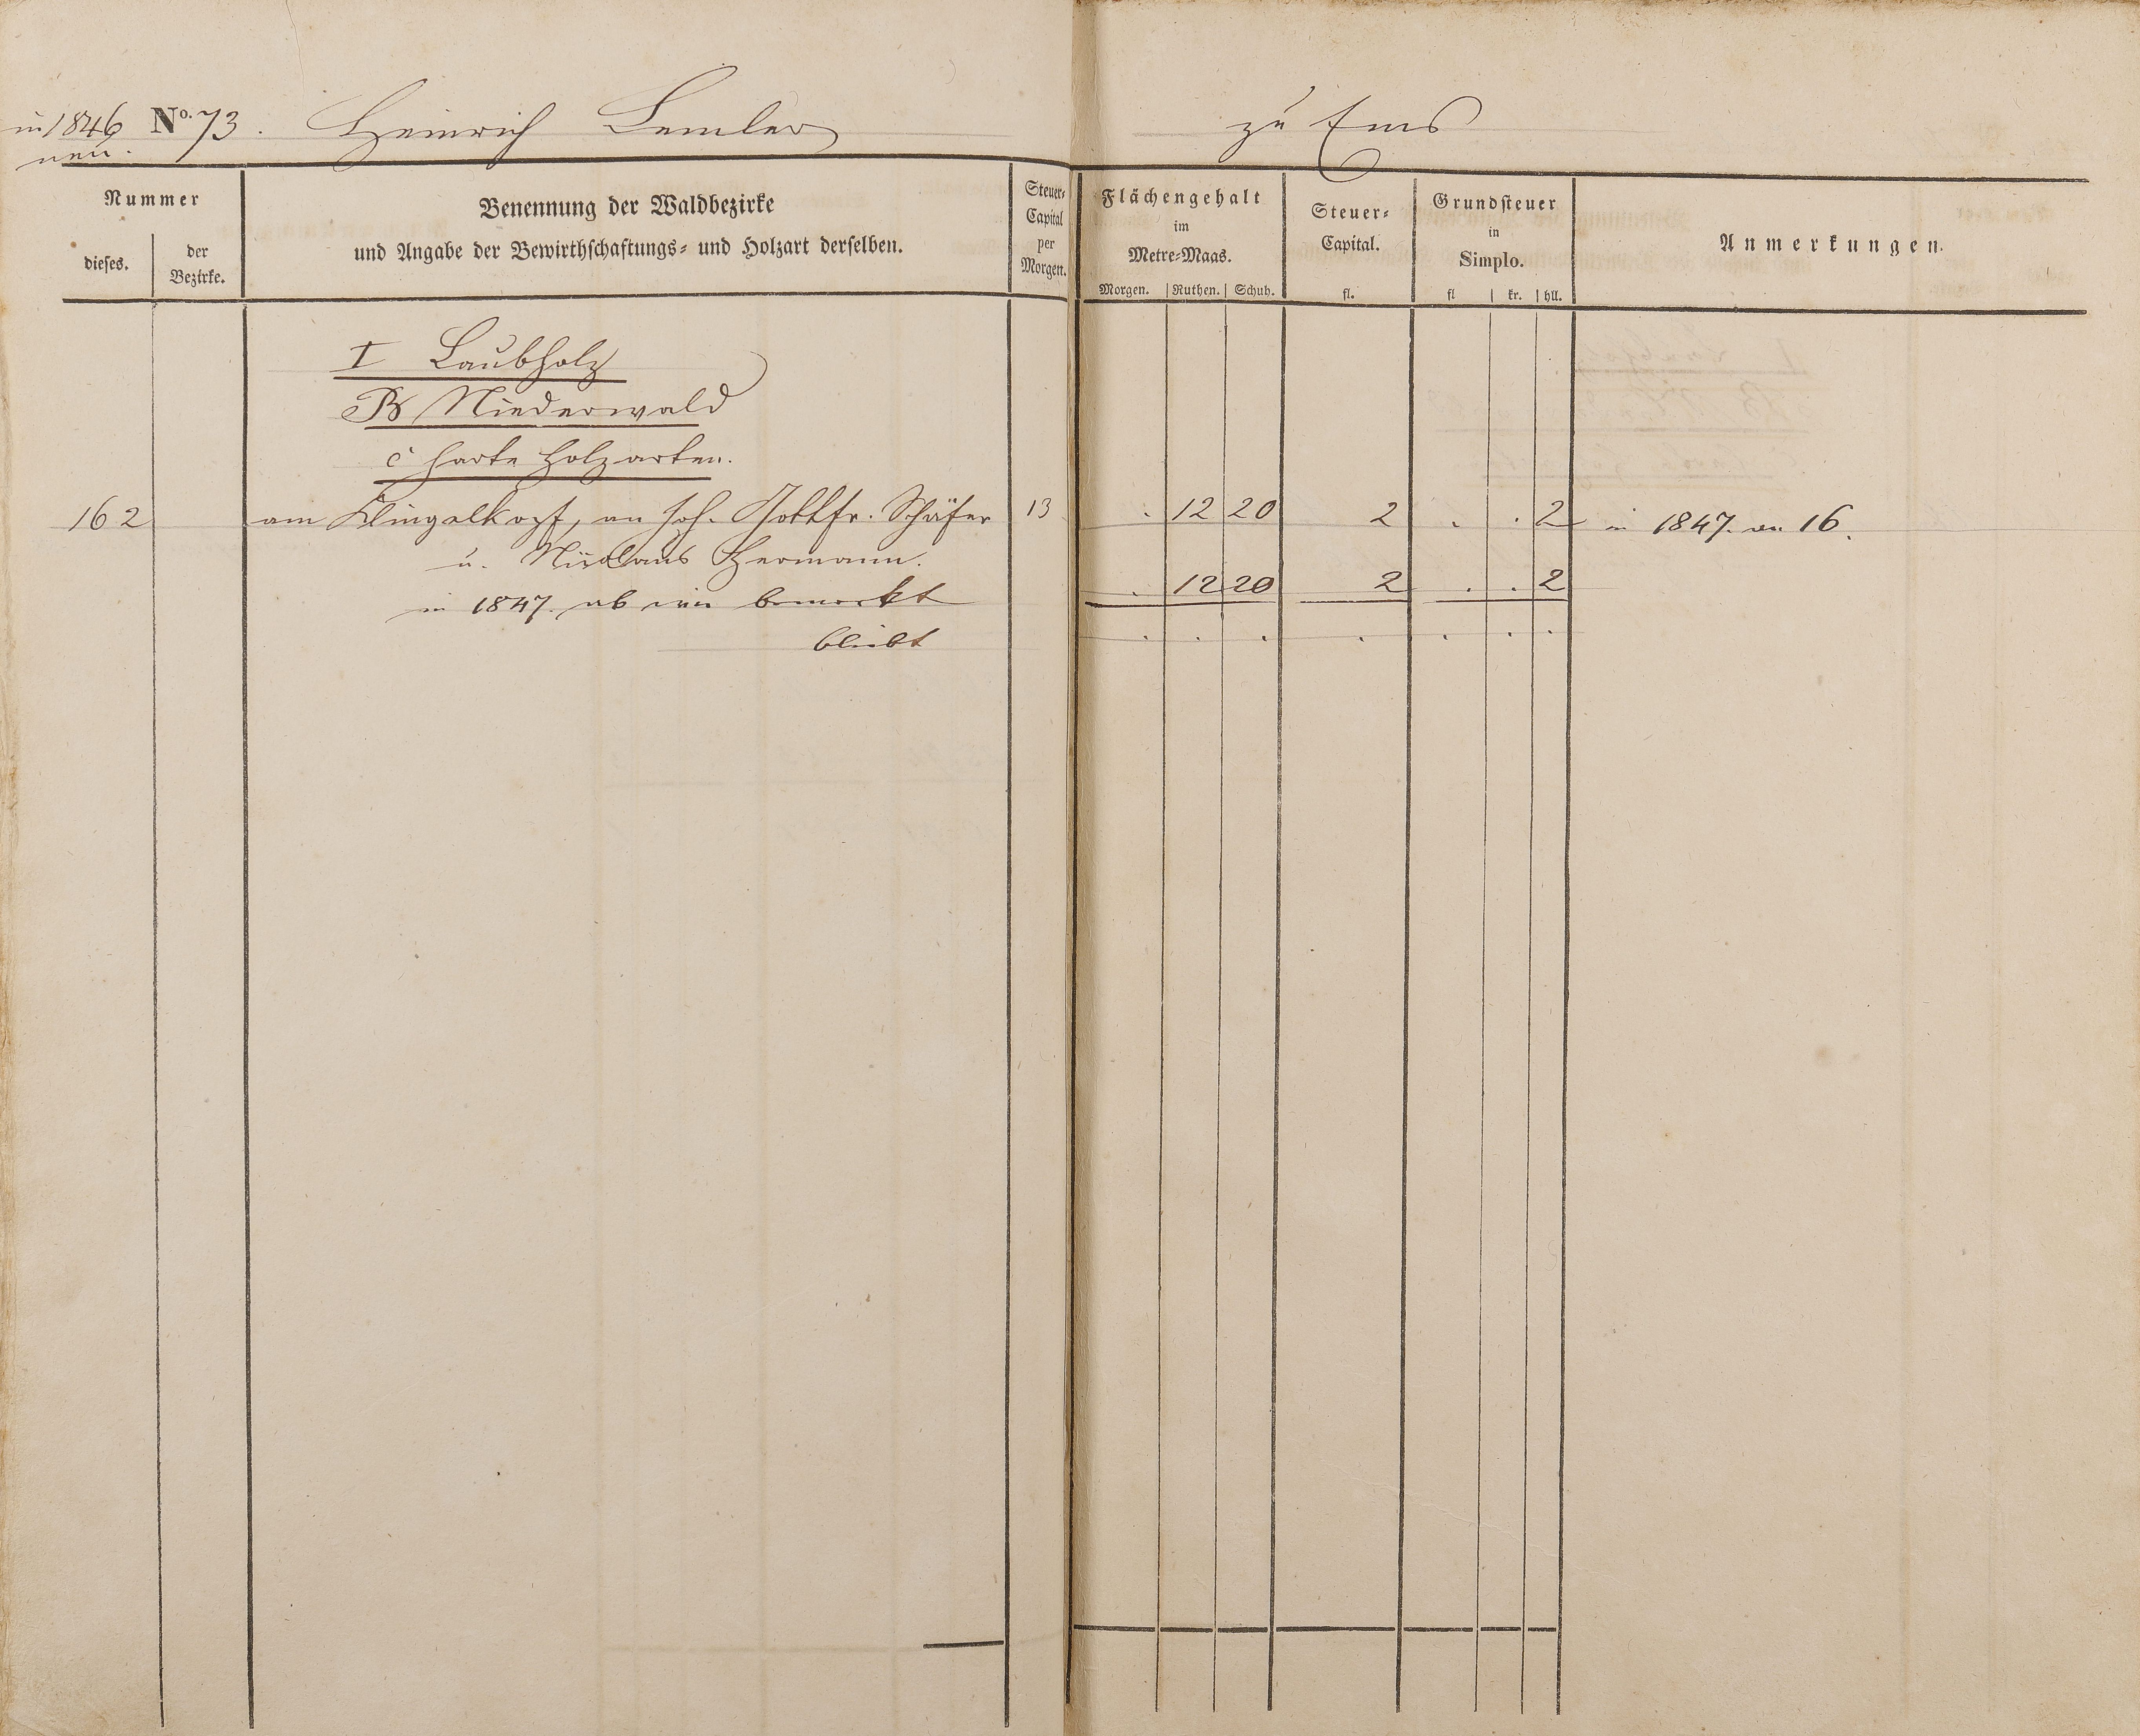 in 1846 No. 73. Heinrich Lemler zu Ems
neu.
Nummer
dieses.
der
Bezirke.
Benennung der Waldbezirke
und Angabe der Bewirthschaftungs- und Holzart derselben.
Steuer-
Capital
per
Morgen.
Flächengehalt
im
Metre-Maas.
Morgen. Ruthen. Schuh.
Steuer-
Capital.
fl.
Grundsteuer
in
Simplo.
fl kr. hll.
Anmerkungen.
I Laubholz
B Niederwald
c harte Holzarten.
162 am Klingelkopf, an Joh. Gottfr. Schäfer 13 . 12 20 2 . . 2 in 1847. an 16.
u. Nicolaus Hermann.
. 12 20 2 . . 2
in 1847. ab wie bemerkt
bleibt . . . . . . .